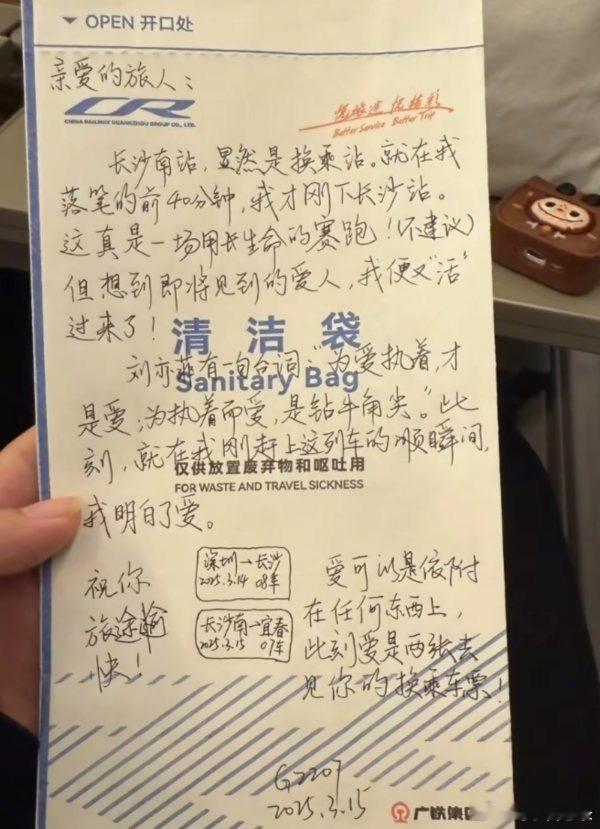 OPEN 开口处
亲爱的旅人：
CR
CHINA RAILWAY GUANGZHOU GROUP CO., LTD.
悦旅途 悦精彩
Better Service Better Trip
长沙南站，显然是换乘站。就在我
落笔的前40分钟，我才刚下长沙站。
这真是一场用长生命的赛跑！（不建议）
但想到即将见到的爱人，我便又“活”
过来了！
清洁袋
刘亦菲有一句台词：“为爱执着，才
Sanitary Bag
是爱；为执着而爱，是钻牛角尖。”此
刻，就在我刚赶上这列车的顺瞬间，
仅供放置废弃物和呕吐用
FOR WASTE AND TRAVEL SICKNESS
我明白了爱。
祝你
旅途愉
快！
深圳→长沙
2025.3.14 08车
长沙南→宜春
2025.3.15 07车
爱可以是依附
在任何东西上，
此刻爱是两张去
见你的换乘车票！
G2207
2025.3.15
广铁集团